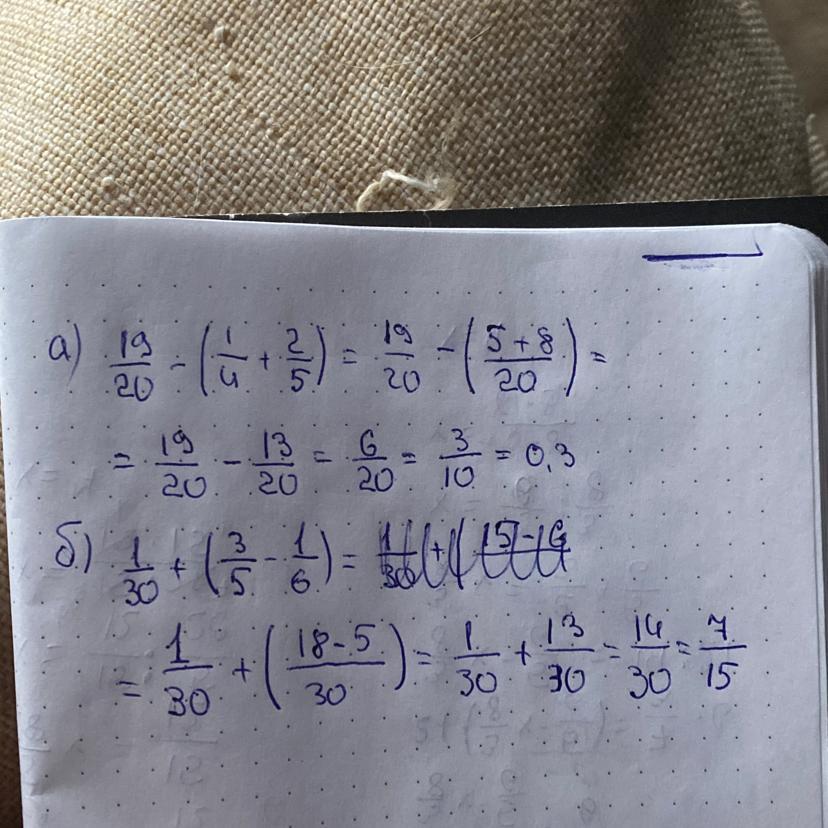 а) 19/20 - (1/4 + 2/5) = 19/20 - (5+8/20) =
= 19/20 - 13/20 = 6/20 = 3/10 = 0,3
б) 1/30 + (3/5 - 1/6) =
= 1/30 + (18-5/30) = 1/30 + 13/30 = 14/30 = 7/15